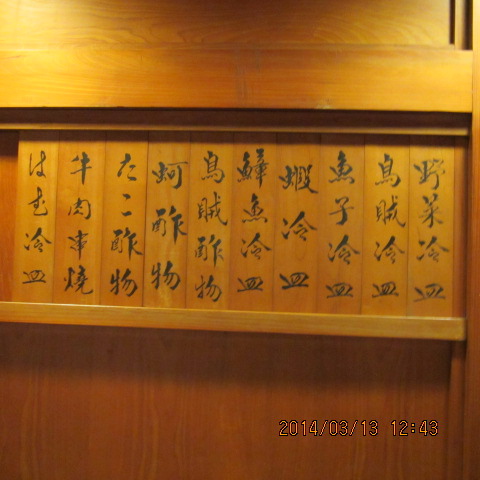 野菜冷皿
烏賊冷皿
魚子冷皿
蝦冷皿
鱆魚冷皿
烏賊酢物
蚵酢物
たこ酢物
牛肉串燒
冷皿
2014/03/13 12:43